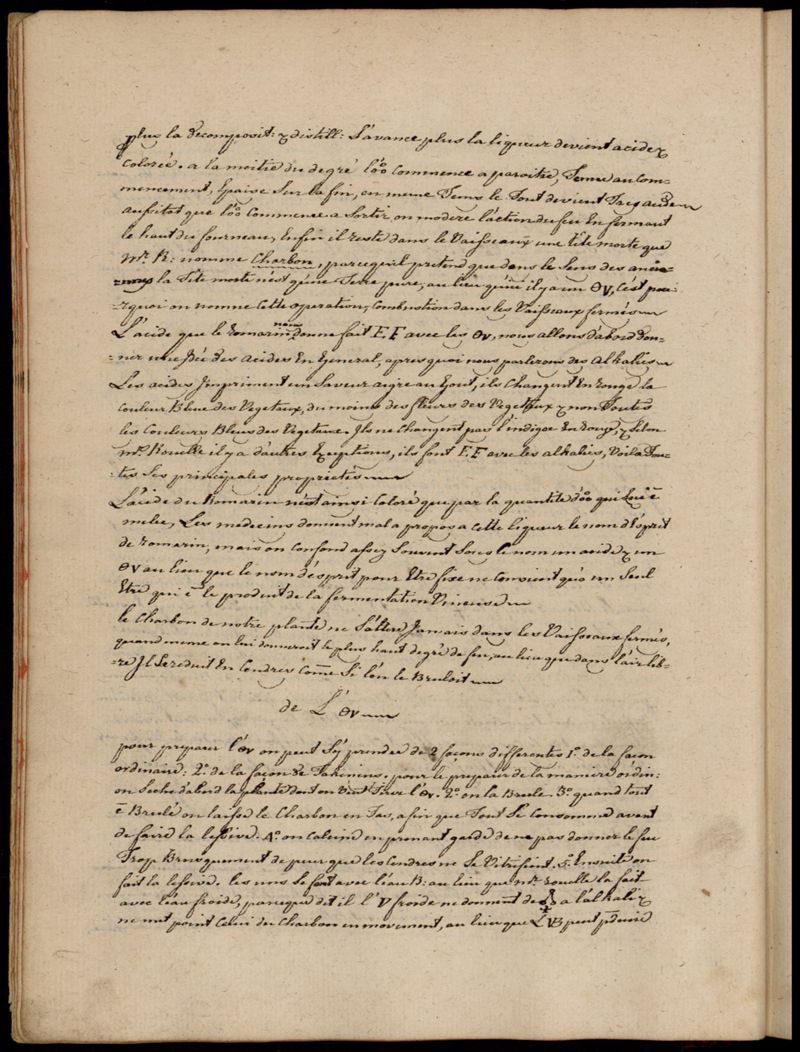 plus la decomposit: & distill: s'avance plus la liqueur devient acide &
colorée. a la moitié du degré l'oo commence a paroitre, Tenue au com=
mencement, Epaisse sur la fin, en meme Tems le Tout devient
ausitot que l'oo commence a sortir on modere l'action du feu En fermant
le haut du fourneau, Enfin il reste dans le Vaisseaux une tête morte que
Mr. R: nomme Charbon, parcequ'il pretend que dans le sens des ancie=
=nnes la Tête morte n'est qu'une Terre pure, au lieu qu'icy il y a un ΘV, c'est pou=
=rquoi on nomme Cette operation, Combustion dans les Vaisseaux fermés
L'acide que le romarin nous donne fait E F avec les ΘV, nous allons d'abord don=
=ner une Idée des acides En General, apres quoi nous parlerons des alkalis
Les acides Impriment un Saveur aigre au Gout, ils changent En rouge la
couleur Bleue des Vegetaux, du moins des fleurs des Vegetaux & non Toutes
les Couleurs Bleus des Vegetaux. Ils ne Changent pas l'indigo En rouge, & selon
mr. Rouelle il y a d'autres Exceptions, ils font E F avec les alkalis, Voila Tou=
=tes Ses principales proprietés
L'acide du Romarin n'est ainsi Coloré que par la quantité d'oo qui lui ē
melée, Les medecins donnent mal a propos a cette liqueur le nom d'Esprit
de romarin, mais on confond assez souvent sous le nom un acide & un
ΘV au lieu que le nom d'esprit pour Etre fixe ne convient qu'a un Seul
Etre qui ē le produit de la fermentation Vineuse
le Charbon de notre plante ne S'altere Jamais dans les Vaisseaux fermés,
quand meme on lui donneroit le plus haut degré de feu, au lieu que dans l'air lib=
=re Il se reduit En Cendres come Si l'on le Bruloit
de L' ΘV
pour preparer l'ΘV on peut S'y prendre de 2 façons differentes 1°. de la façon
ordinaire: 2°. de la façon de Takenius. pour le preparer de la maniere ordin:
on Seche d'abord la plante dont on veut Tirer l'ΘV. 2°. on la Brule. 3°. quand tout
ē Brulé on laisse le Charbon en Tas, afin que Tout Se Consomme avant
de faire la lessive. 4°. on calcine en prenant garde de ne pas donner le feu
Trop Brusquement de peur que les Cendres ne Se Vitrifient. 5°. Ensuite on
fait la lessive. les uns le font avec l'eau B: au lieu que Mr. rouelle la fait
avec l'eau froide, parceque dit il l'V froide ne donnent de a l'alkali &
ne met point Celui du Charbon en mouvement, au lieu que L'VB peut produire